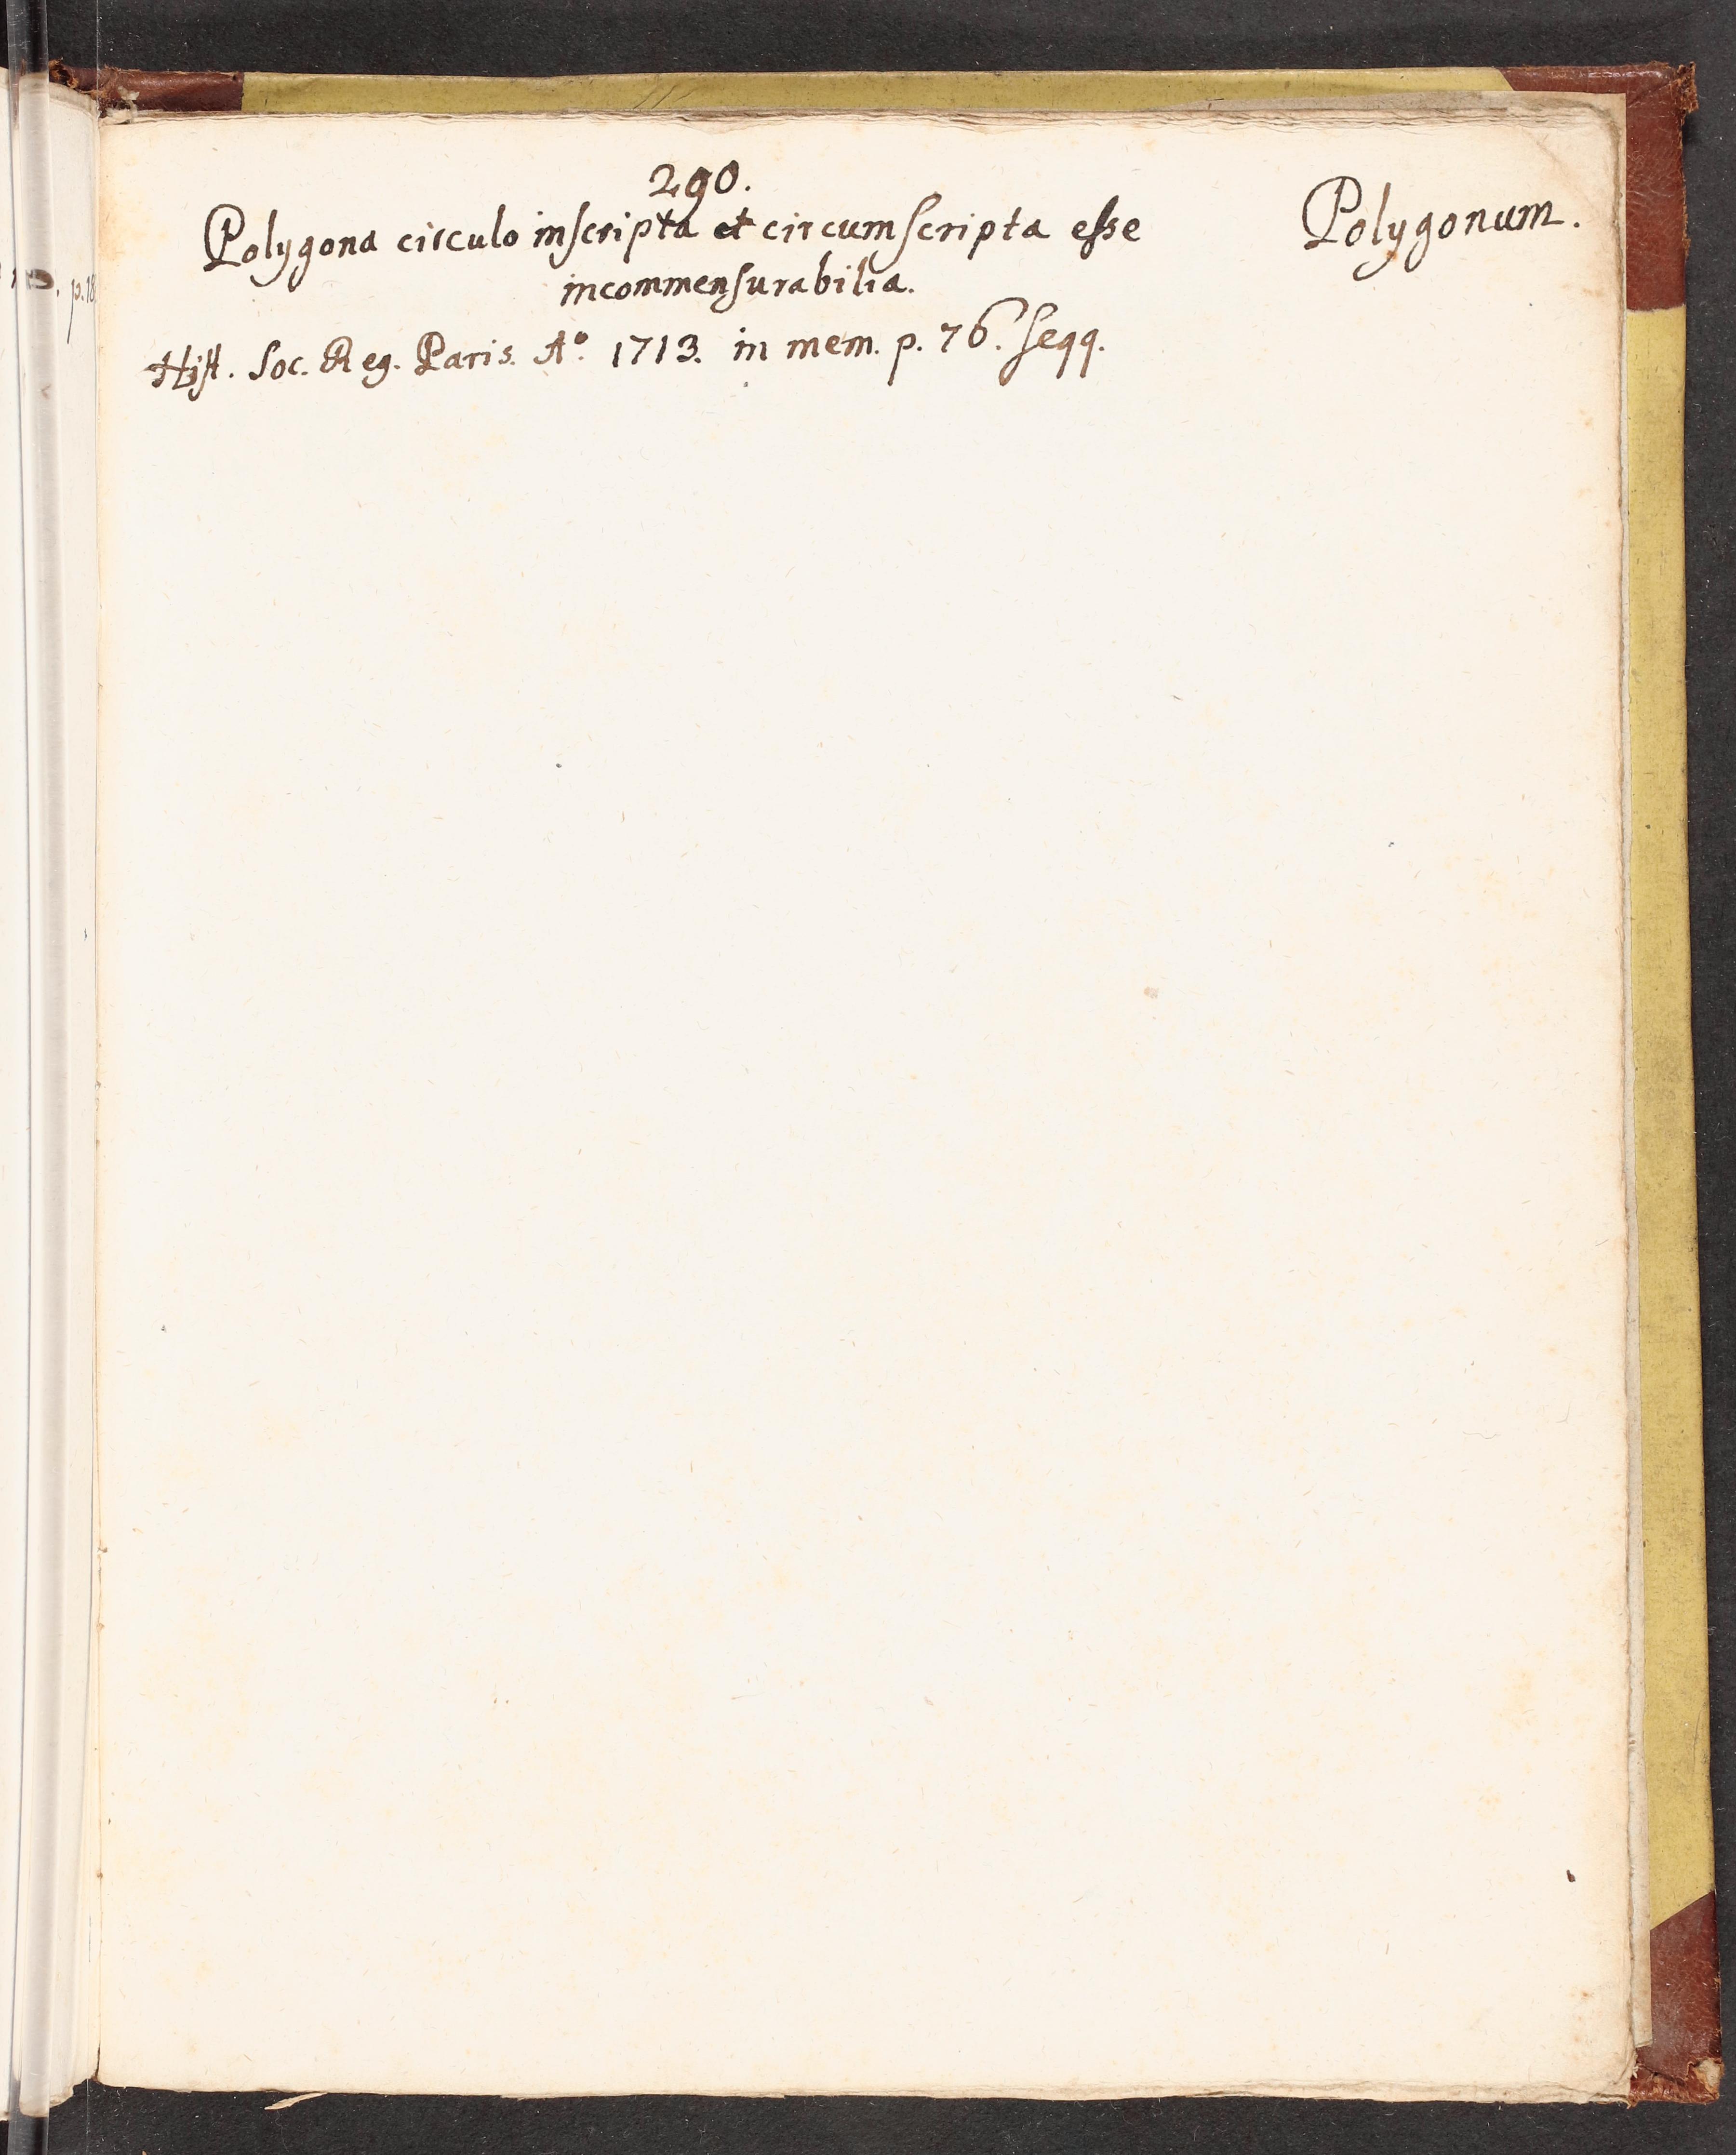 290.
Polygona circulo inscripta et circumscripta esse
incommensurabilia.
Polygonum.
Hist. Soc. Reg. Paris. A.º 1713. in mem. p. 76. seqq.
p. 18